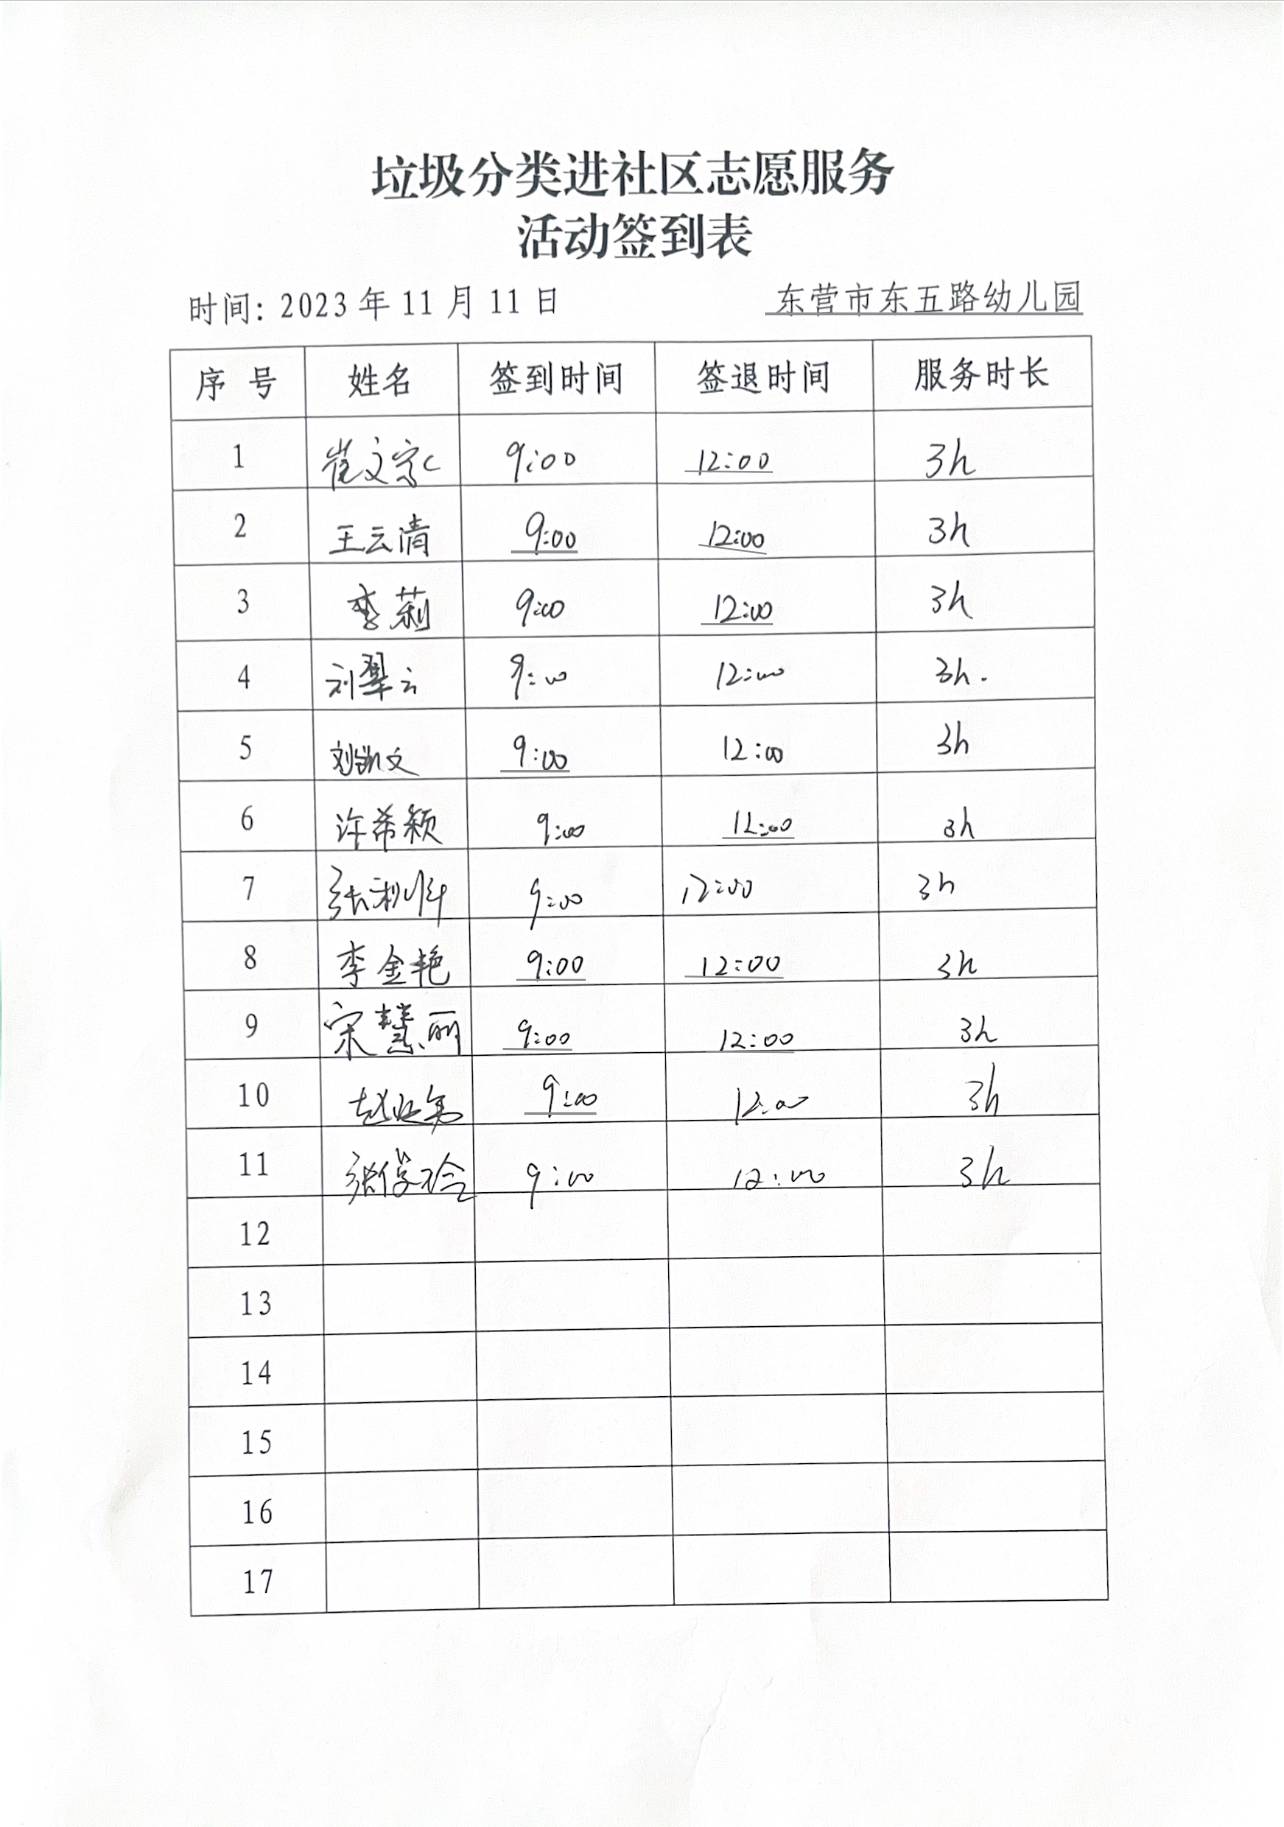 垃圾分类进社区志愿服务
活动签到表
时间: 2023 年 11 月 11 日 东营市东五路幼儿园
序 号 姓名 签到时间 签退时间 服务时长
1 崔文 9:00 12:00 3h
2 王云清 9:00 12:00 3h
3 李莉 9:00 12:00 3h
4 刘翠云 9:00 12:00 3h.
5 刘凯文 9:00 12:00 3h
6 许希颖 9:00 12:00 3h
7 张利 9:00 12:00 3h
8 李金艳 9:00 12:00 3h
9 宋慧丽 9:00 12:00 3h
10 赵 9:00 12:00 3h
11 张 9:00 12:00 3h
12
13
14
15
16
17